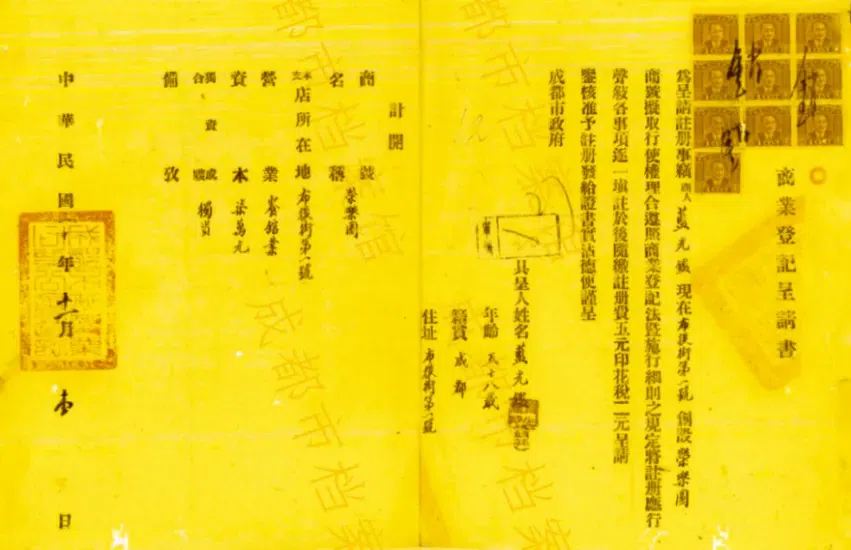 商業登記呈請書
為呈請註册事竊商人藍光鑑現在布後街第二號創設榮樂園
商號擬取行使權理合遵照商業登記法暨施行細則之規定將註册應行
聲敍各事項逐一填註於後隨繳註册費五元印花稅二元呈請
鑒核准予註册發給證書實沾德便謹呈
成都市政府
具呈人姓名藍光鑑
年齡五十八歲
籍貫成都
住址布後街第二號
計開
商號
名稱 榮樂園
本支店所在地 布後街第二號
營業 餐館業
資本 柒萬元
獨資或合夥 獨資
備攷
中華民國十年十一月壹日
成都市档案馆